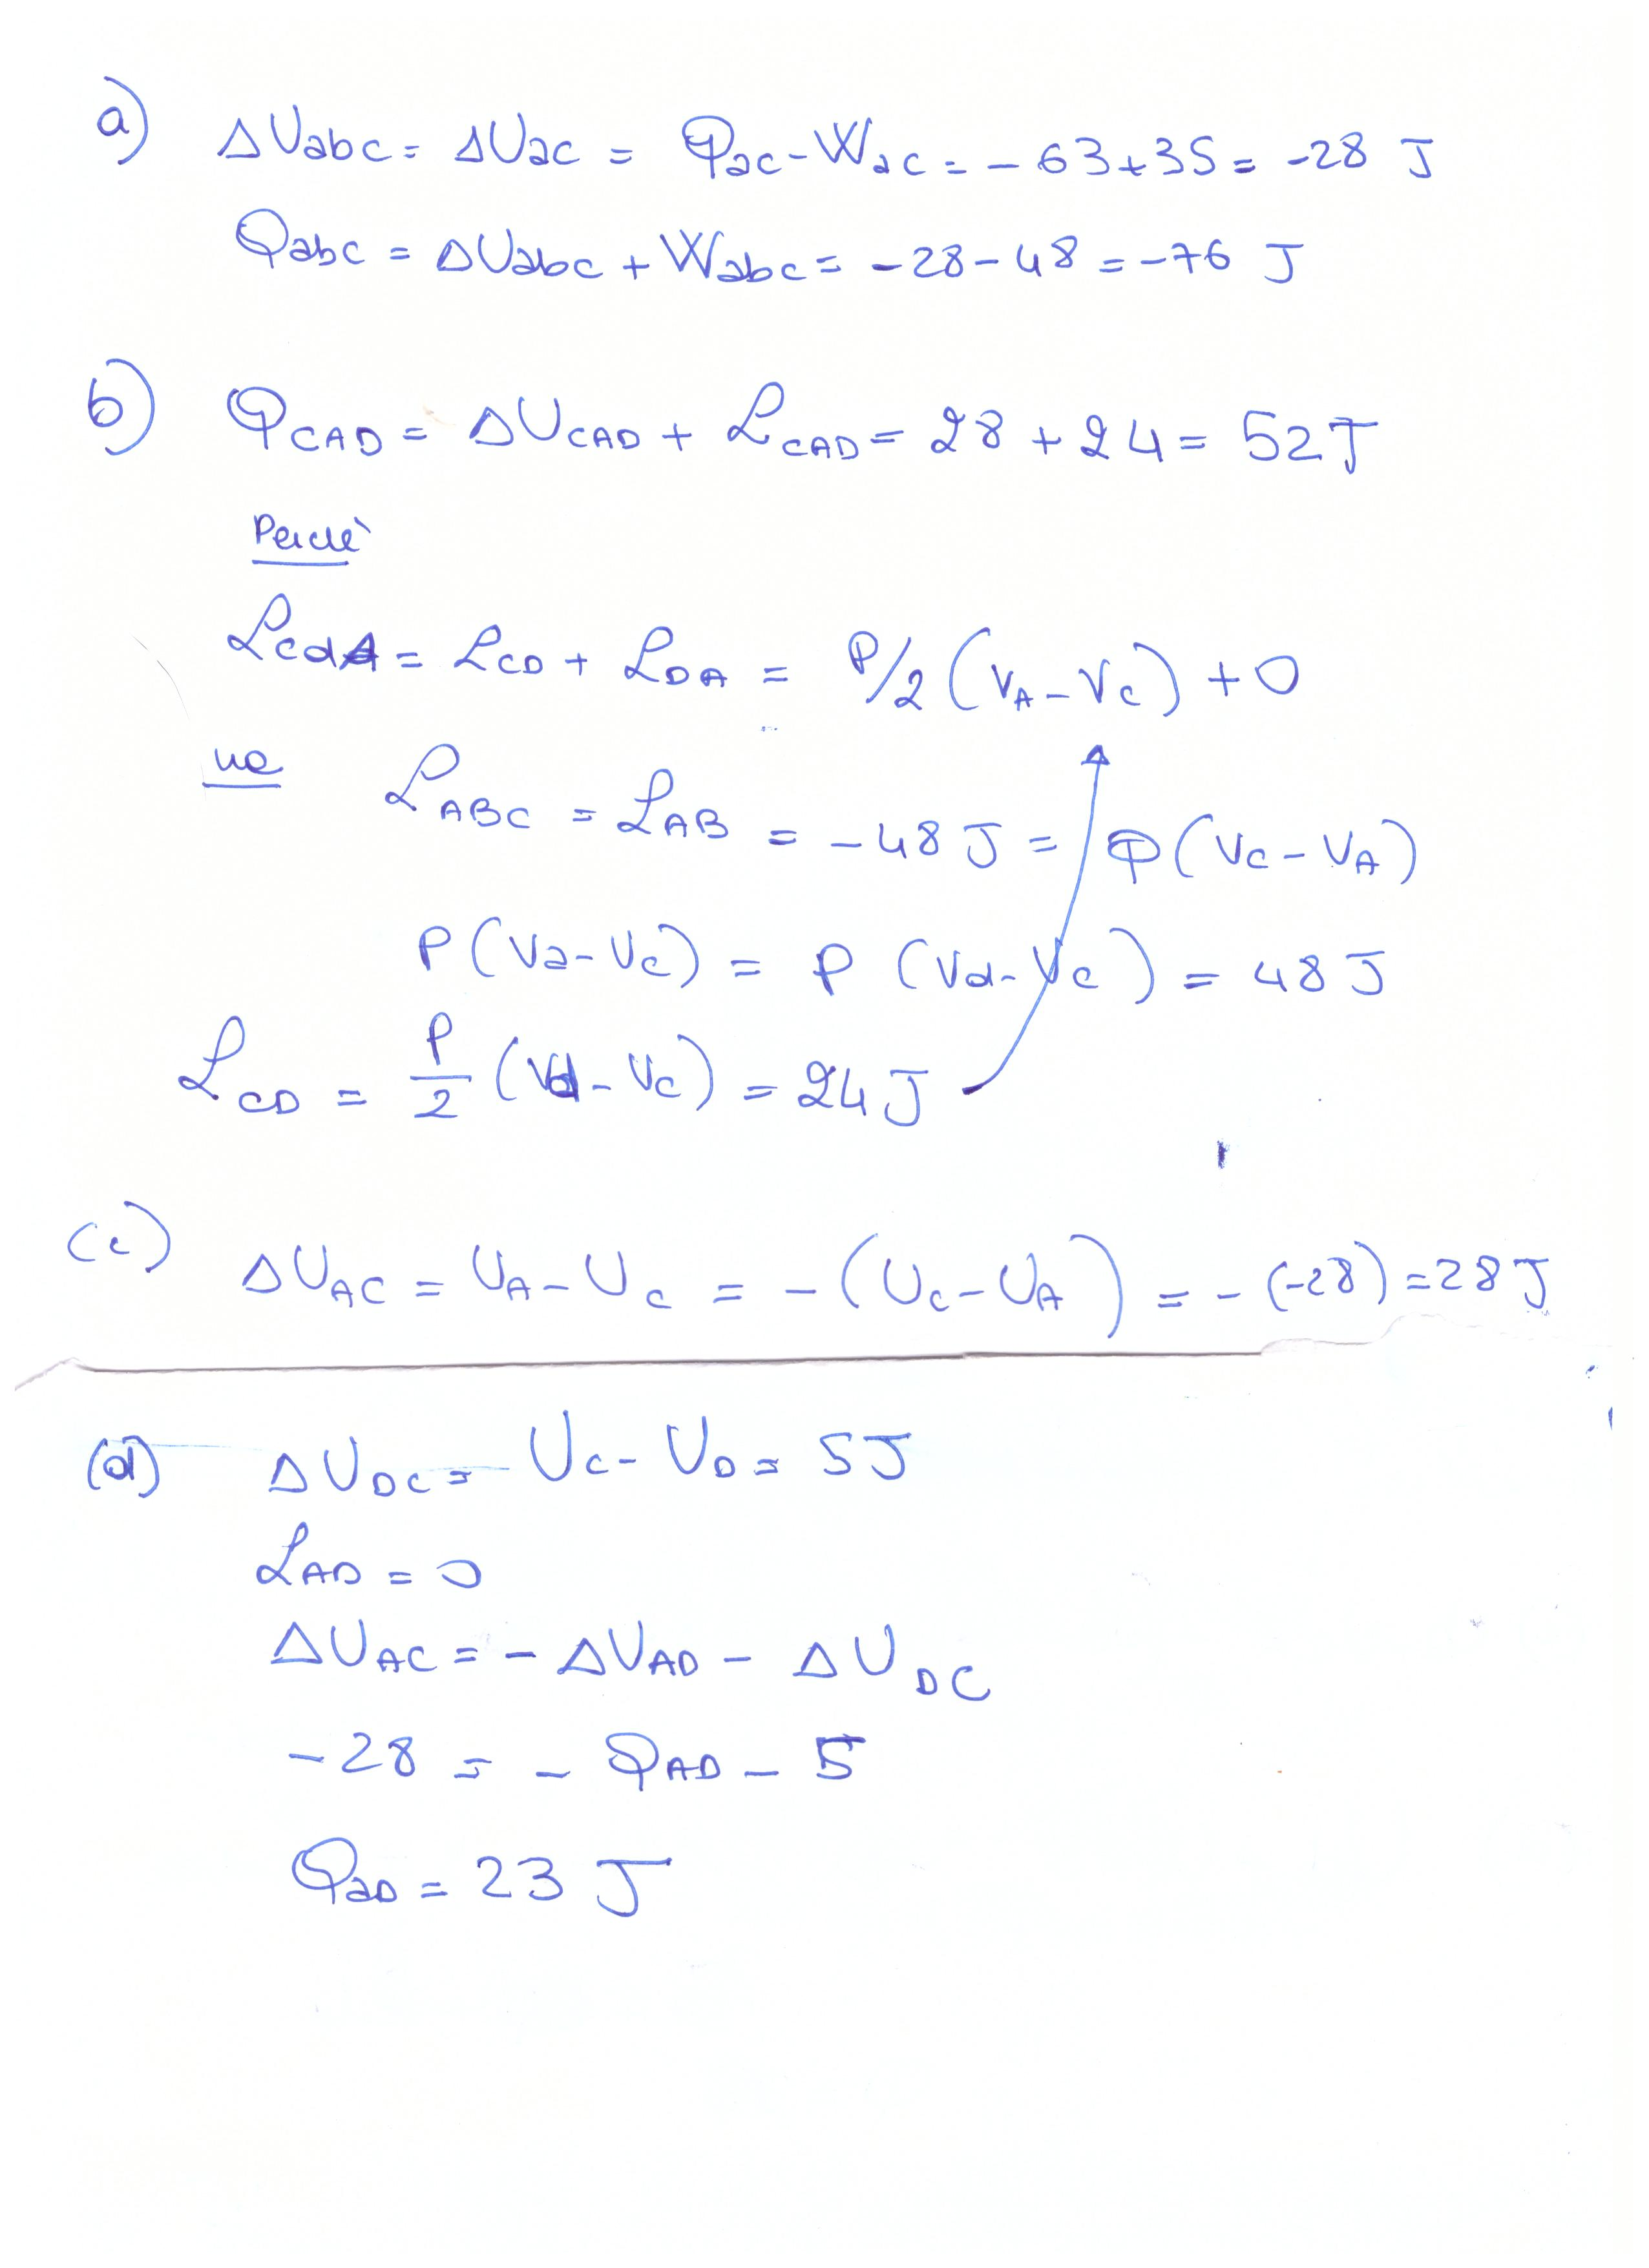 a) ΔUabc = ΔUac = Qac - Wac = - 63 + 35 = -28 J
Qabc = ΔUabc + Wabc = -28 - 48 = -76 J
b) QCAD = ΔUCAD + ℒCAD = 28 + 24 = 52 J
Perché
ℒcdA = ℒCD + ℒDA = P/2 (VA - Vc) + 0
ma ℒABC = ℒAB = - 48 J = P (Vc - VA)
P (Va - Vc) = P (Vd - Vc) = 48 J
ℒCD = P/2 (Vd - Vc) = 24 J
(c) ΔUAC = UA - Uc = - (Uc - UA) = - (-28) = 28 J
(d) ΔUDC = Uc - UD = 5 J
ℒAD = 0
ΔUAC = - ΔUAD - ΔUDC
-28 = - QAD - 5
QaD = 23 J